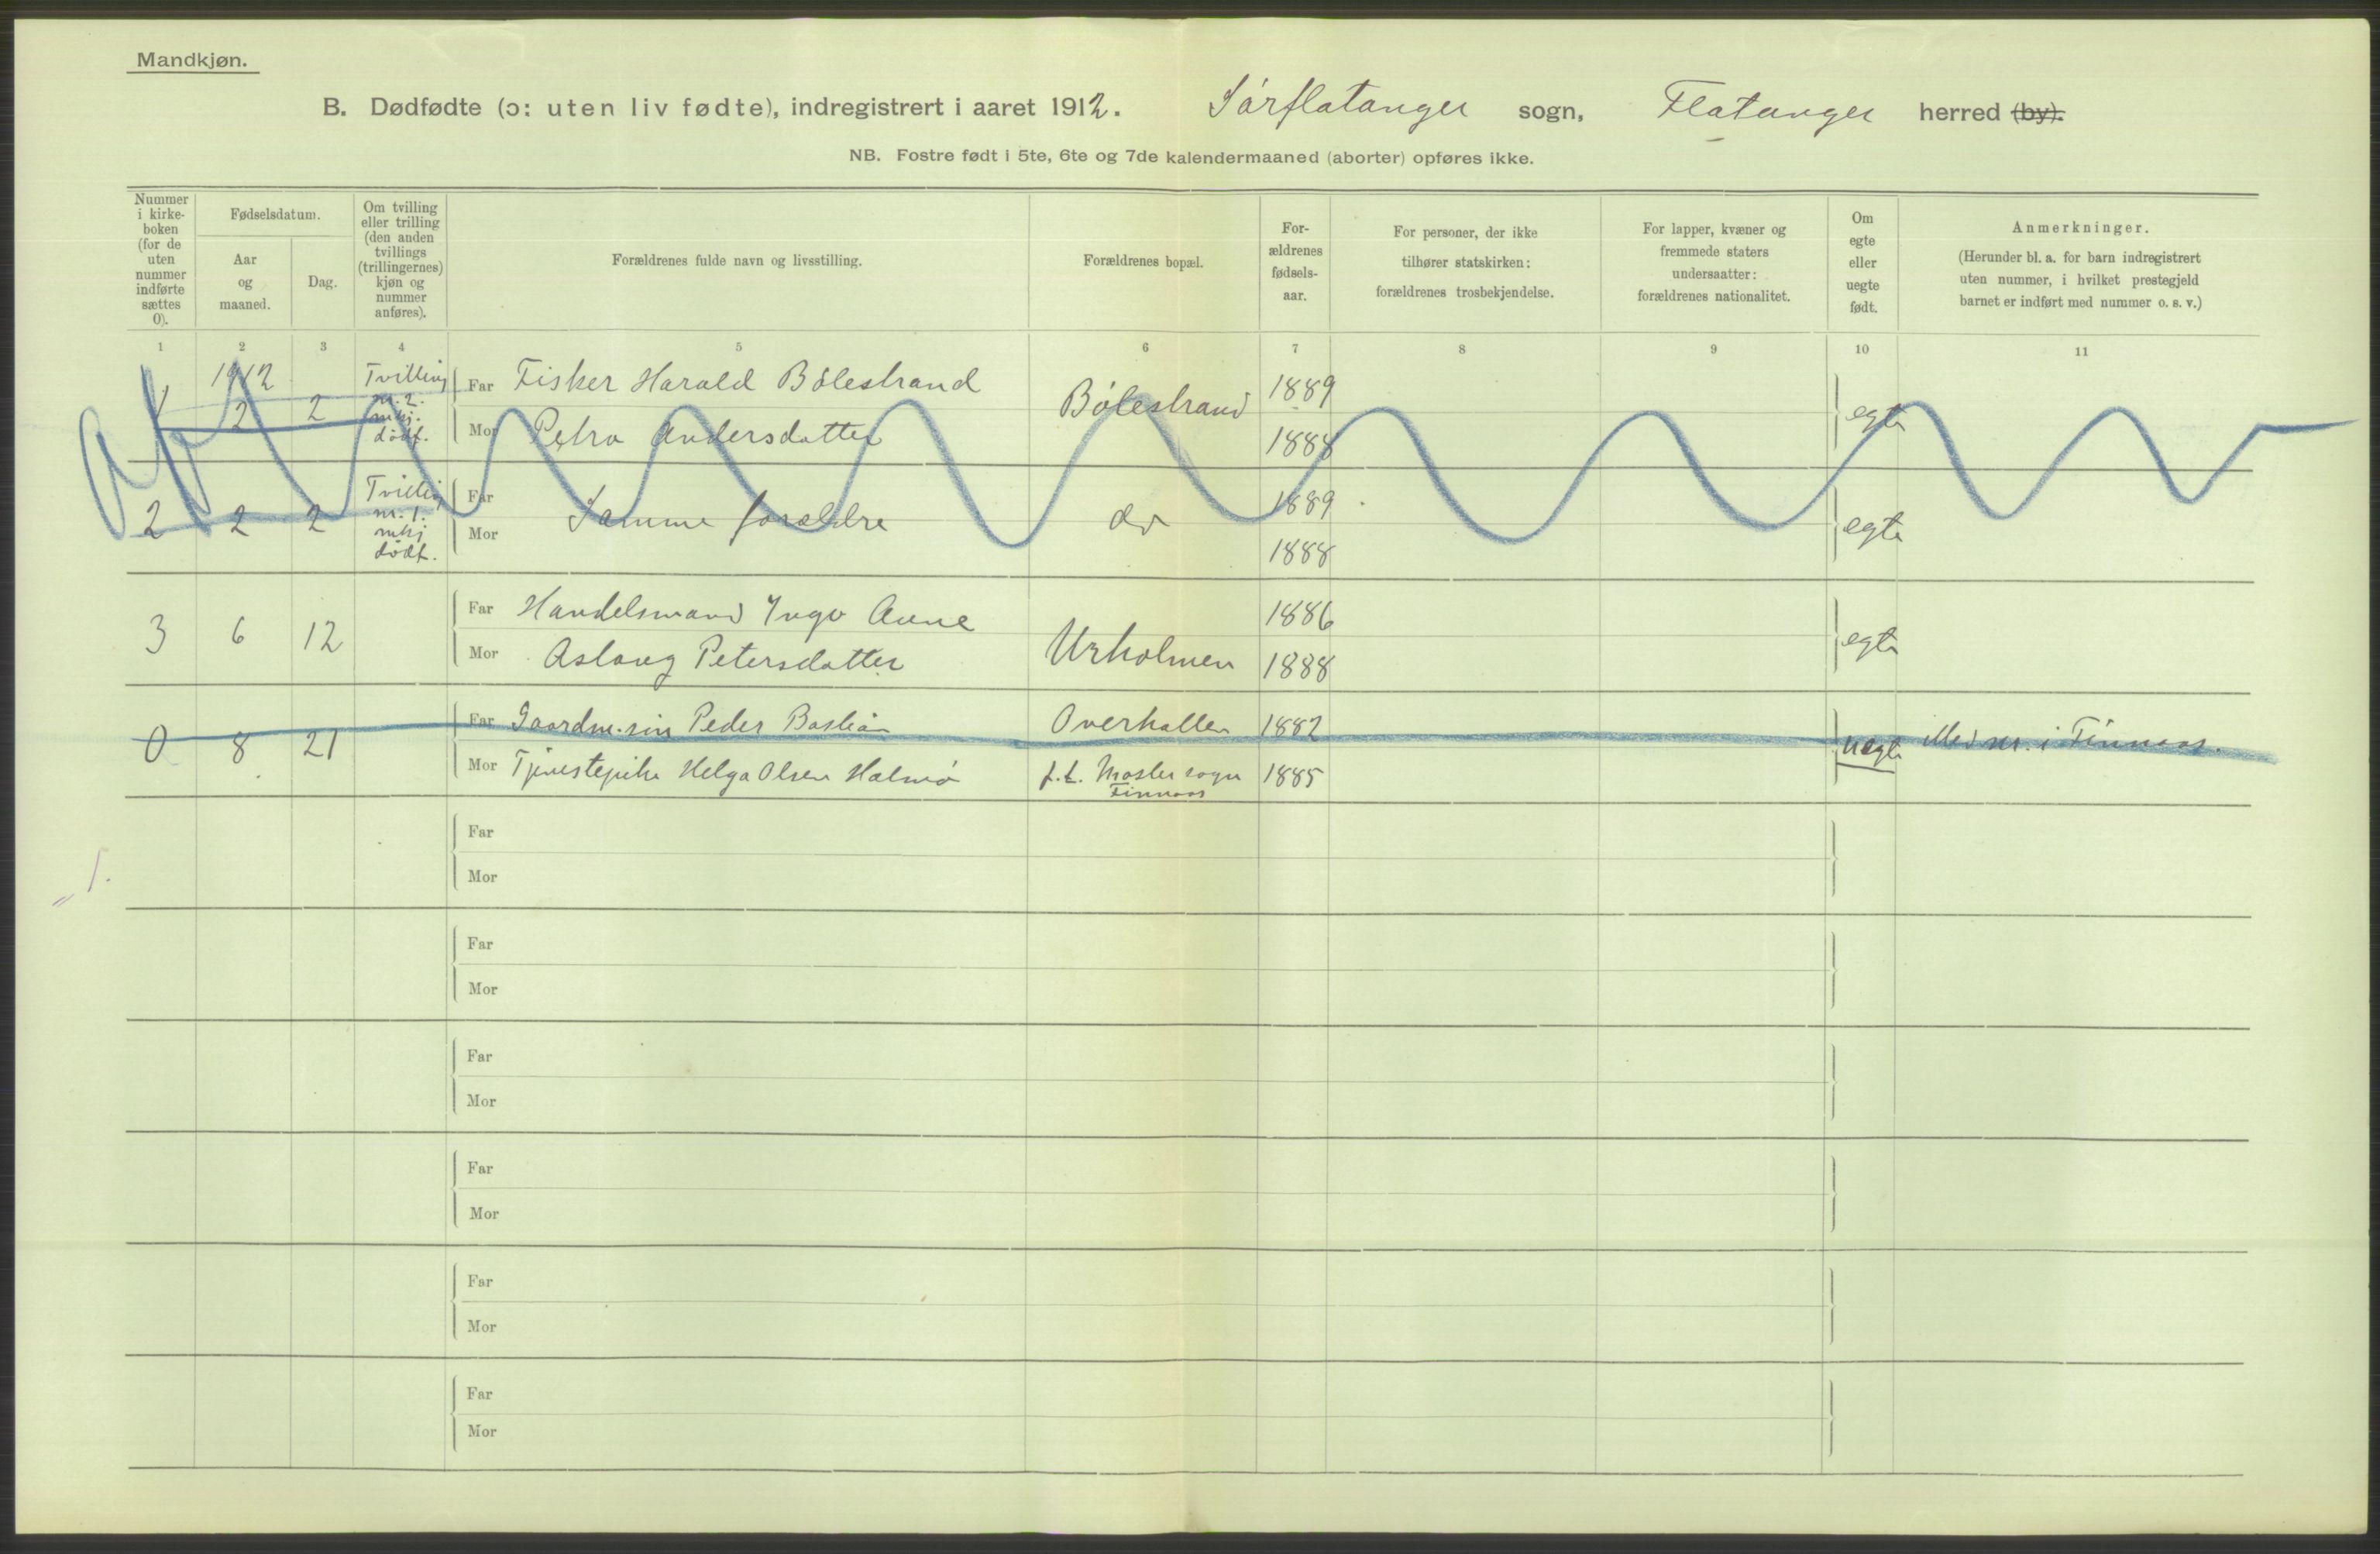 Mandkjøn.
B. Dødfødte (ɔ: uten liv fødte), indregistrert i aaret 1912. Sörflatanger sogn, Flatanger herred (by).
NB. Fostre født i 5te, 6te og 7de kalendermaaned (aborter) opføres ikke.
Nummer
i kirke-
boken
(for de
uten
nummer
indførte
sættes
0).
Fødselsdatum.
Aar
og
maaned.
Dag.
Om tvilling
eller trilling
(den anden
tvillings
(trillingernes)
kjøn og
nummer
anføres).
Forældrenes fulde navn og livsstilling.
Forældrenes bopæl.
For-
ældrenes
fødsels-
aar.
For personer, der ikke
tilhører statskirken:
forældrenes trosbekjendelse.
For lapper, kvæner og
fremmede staters
undersaatter:
forældrenes nationalitet.
Om
egte
eller
uegte
født.
Anmerkninger.
(Herunder bl. a. for barn indregistrert
uten nummer, i hvilket prestegjeld
barnet er indført med nummer o. s. v.)
1 2 3 4 5 6 7 8 9 10 11
1 1912 2 2 Tvilling
nr. 2.
mkj.
dödf.
Far Fisker Harald Bölestrand
Mor Petra Andersdatter
Bölestrand
1889
1888
egte
2 2 2 Tvilling
nr. 1.
mkj
dödf.
Far
Mor
Samme forældre
do
1889
1888
egte
3 6 12
Far Handelsmand Ingv Aune
Mor Aslaug Petersdatter
Urholmen
1886
1888
egte
0 8 21
Far Gaardm.sön Peder Bastian
Mor Tjenestepike Helga Olsen Halmö
Overhallen
f.t. Moster sogn
Finnaas
1882
1885
uegte
Med nr. i Finnaas.
Far
Mor
1.
Far
Mor
Far
Mor
Far
Mor
Far
Mor
Far
Mor